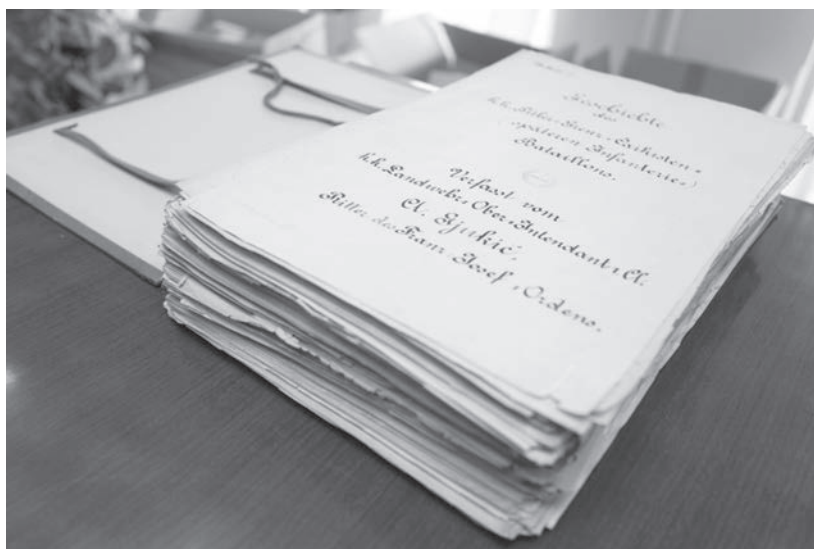 Geschichte
des
k.k. Titler-Grenz-Csaikisten-
(späteren Infanterie-)
Bataillons.
Verfasst vom
k.k. Landwehr-Ober-Intendant i. R.
A. Gjukić,
Ritter des Franz-Josef-Ordens.